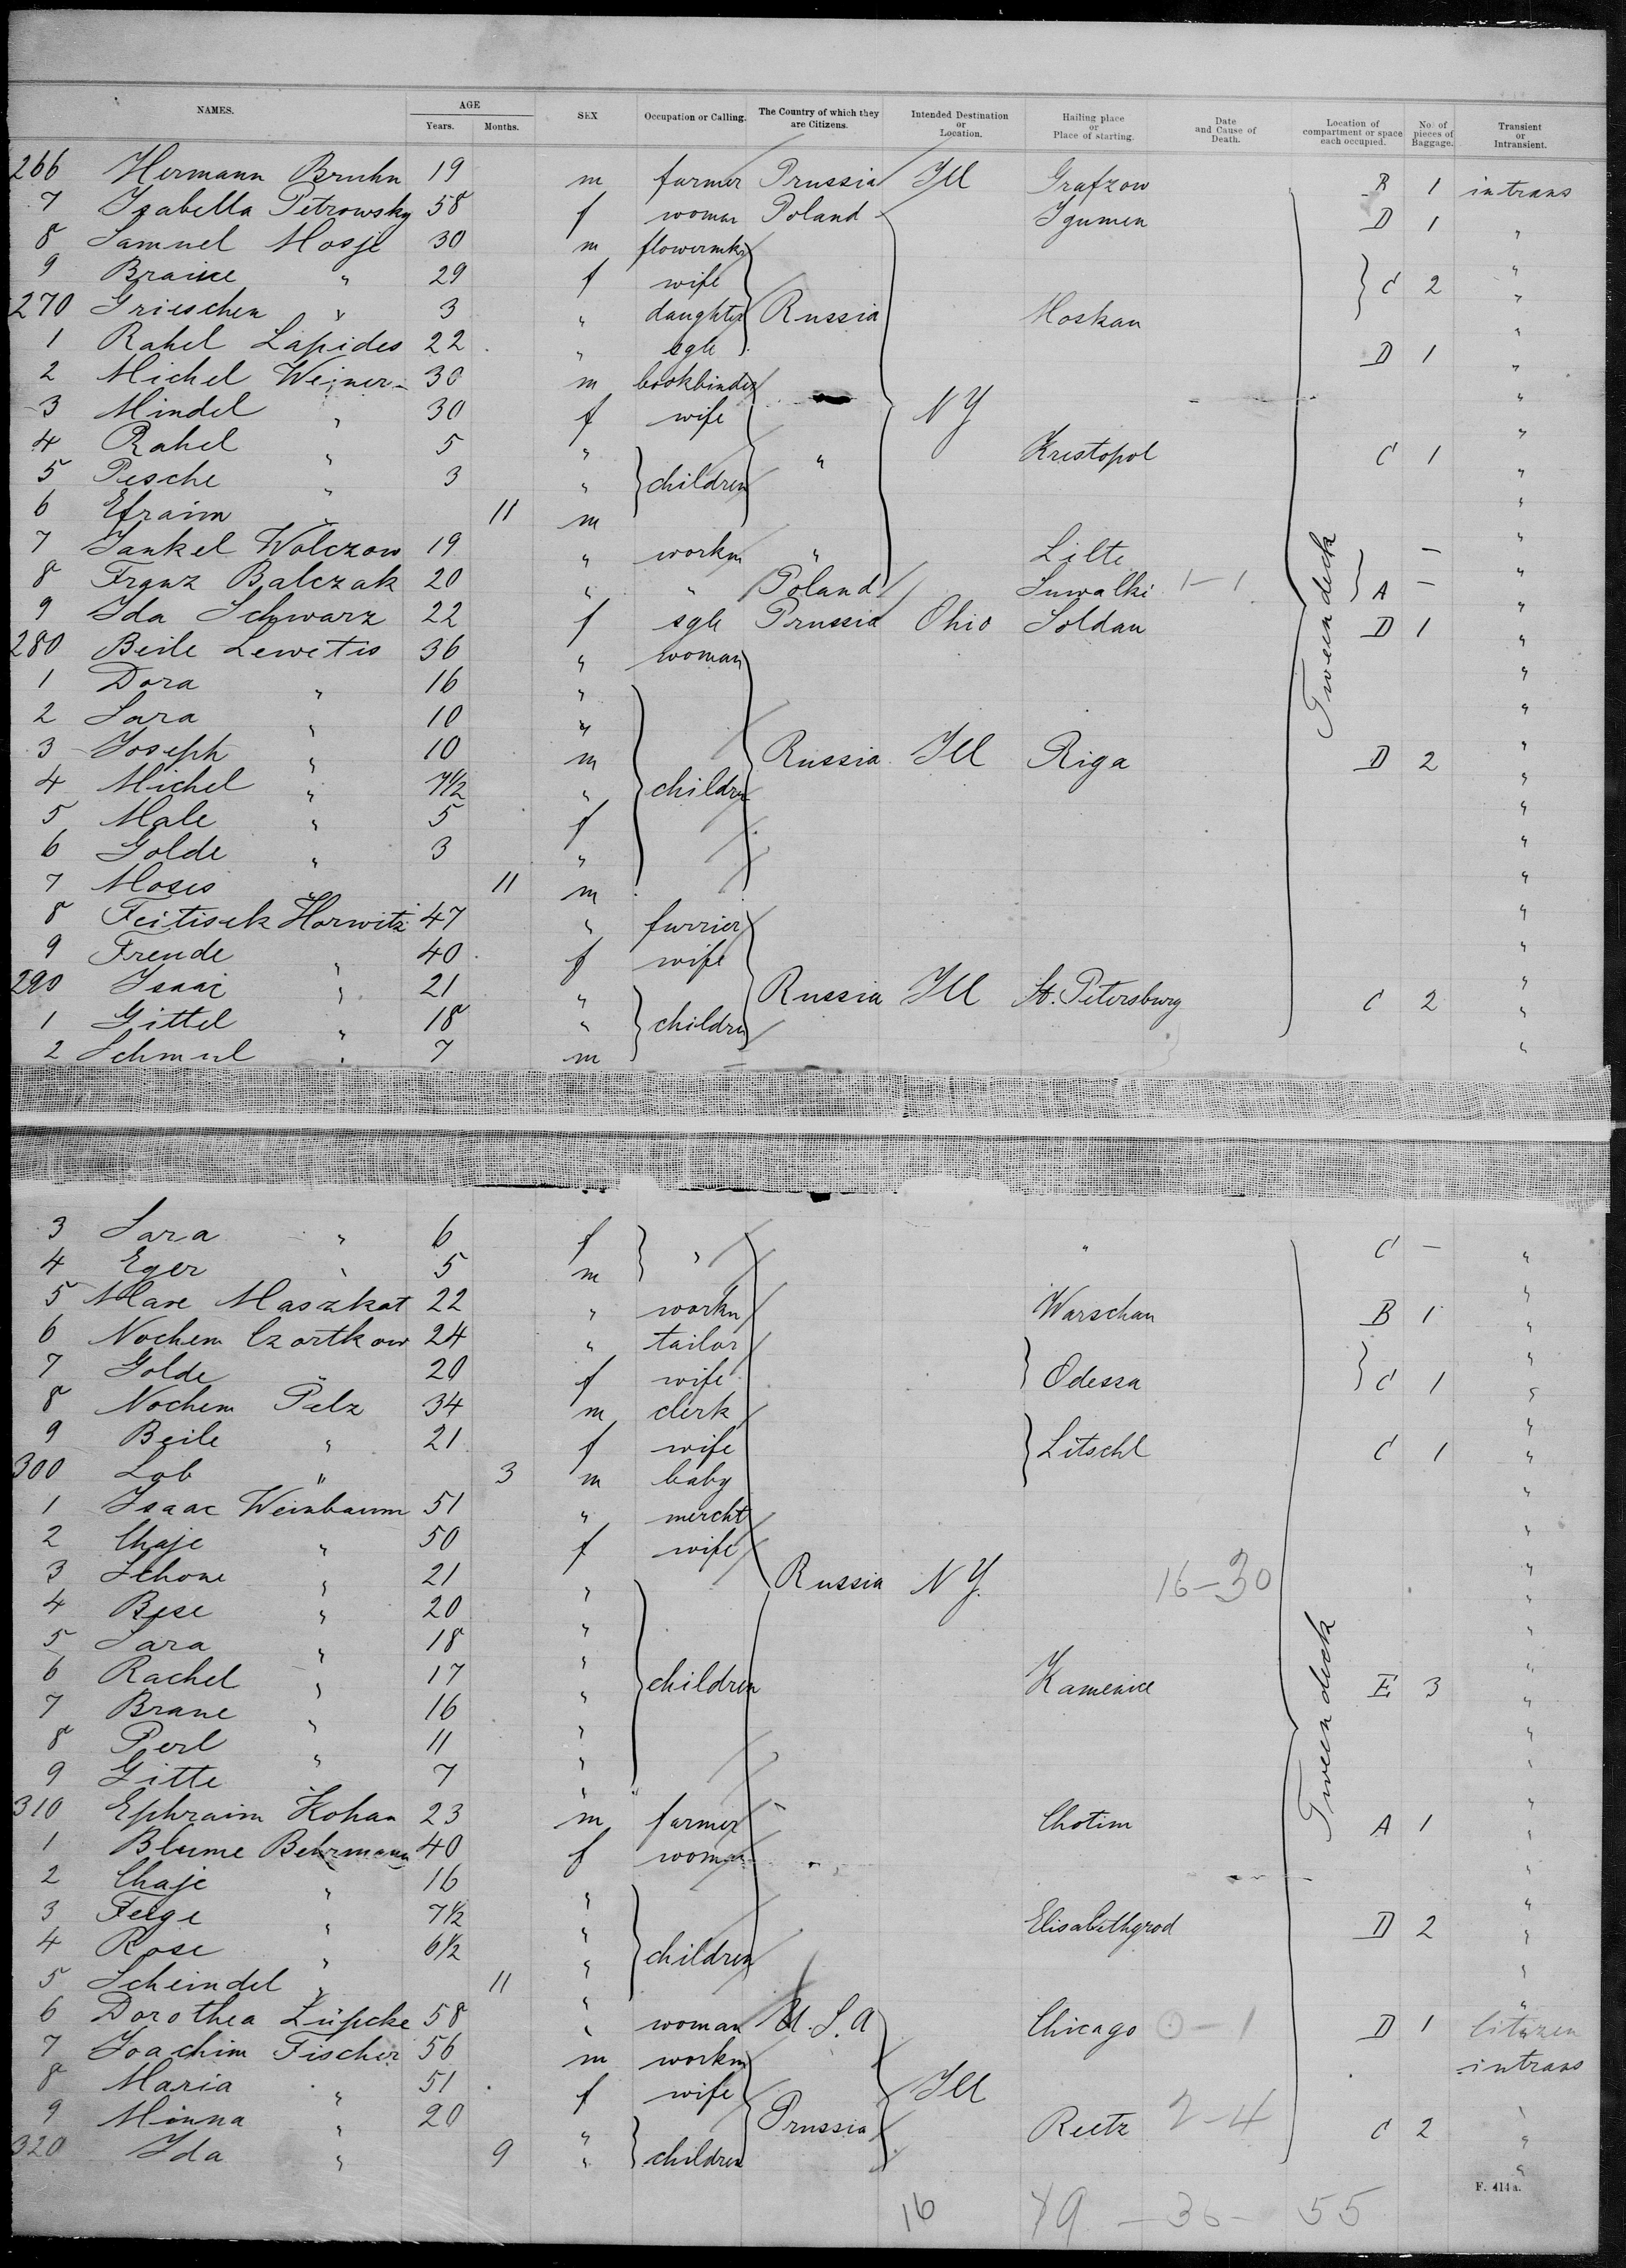 NAMES. AGE Years. Months. SEX Occupation or Calling. The Country of which they are Citizens. Intended Destination or Location. Hailing place or Place of starting. Date and Cause of Death. Location of compartment or space each occupied. No. of pieces of Baggage. Transient or Intransient.
266 Hermann Bruhn 19 m farmer Prussia Ill Grafzow B 1 intrans
7 Isabella Petrowsky 58 f woman Poland Igumen D 1 "
8 Samuel Mosje 30 m flowermkr "
9 Braine " 29 f wife C 2 "
270 Grieschen " 3 " daughter Russia Moskau "
1 Rahel Lapides 22 " sgle D 1 "
2 Michel Wejner 30 m bookbinder "
3 Mindel " 30 f wife N Y "
4 Rahel " 5 " " Krestopol C 1 "
5 Pesche " 3 " children "
6 Efraim " 11 m "
7 Jankel Wolczow 19 " workm " Lilte — "
8 Franz Balczak 20 " " Poland Suwalki 1-1 A — "
9 Ida Schwarz 22 f sgle Prussia Ohio Soldau D 1 "
280 Beile Lewetis 36 " woman "
1 Dora " 16 " "
2 Sara " 10 " "
3 Joseph " 10 m Russia Ill Riga D 2 "
4 Michel " 7 1/2 " children "
5 Male " 5 f "
6 Golde " 3 " "
7 Moses " 11 m "
8 Feitisek Horwitz 47 " furrier "
9 Freude " 40 f wife "
290 Isaac " 21 " Russia Ill St. Petersburg C 2 "
1 Gittel " 18 " children "
2 Schmul " 7 m "
Tween deck
3 Sara " 6 f " " C — "
4 Eger " 5 m
5 Mare Maszkat 22 " workm Warschau B 1 "
6 Nochem Czortkow 24 " tailor "
7 Golde " 20 f wife Odessa C 1 "
8 Nochem Pelz 34 m clerk "
9 Beile " 21 f wife Litschl C 1 "
300 Lob " 3 m baby "
1 Isaac Weinbaum 51 " mercht "
2 Chaje " 50 f wife "
3 Schone " 21 " Russia N Y. 16-30 "
4 Bese " 20 " "
5 Sara " 18 " "
6 Rachel " 17 " children Kamenice E 3 "
7 Brane " 16 " "
8 Perl " 11 " "
9 Gitte " 7 " "
310 Ephraim Kohan 23 m farmer Chotim A 1 "
1 Blume Behrmann 40 f woman "
2 Chaje " 16 " "
3 Feige " 7 1/2 " Elisabethgrod D 2 "
4 Rose " 6 1/2 " children "
5 Scheindel " 11 " "
6 Dorothea Lüpcke 58 " woman U.S.A Chicago 0-1 D 1 Citizen
7 Joachim Fischer 56 m workm intrans
8 Maria " 51 f wife Ill "
9 Minna " 20 " Prussia Reetz 2-4 C 2 "
320 Ida " 9 " children "
Tween deck
F. 414 a.
16 19 - 36 - 55